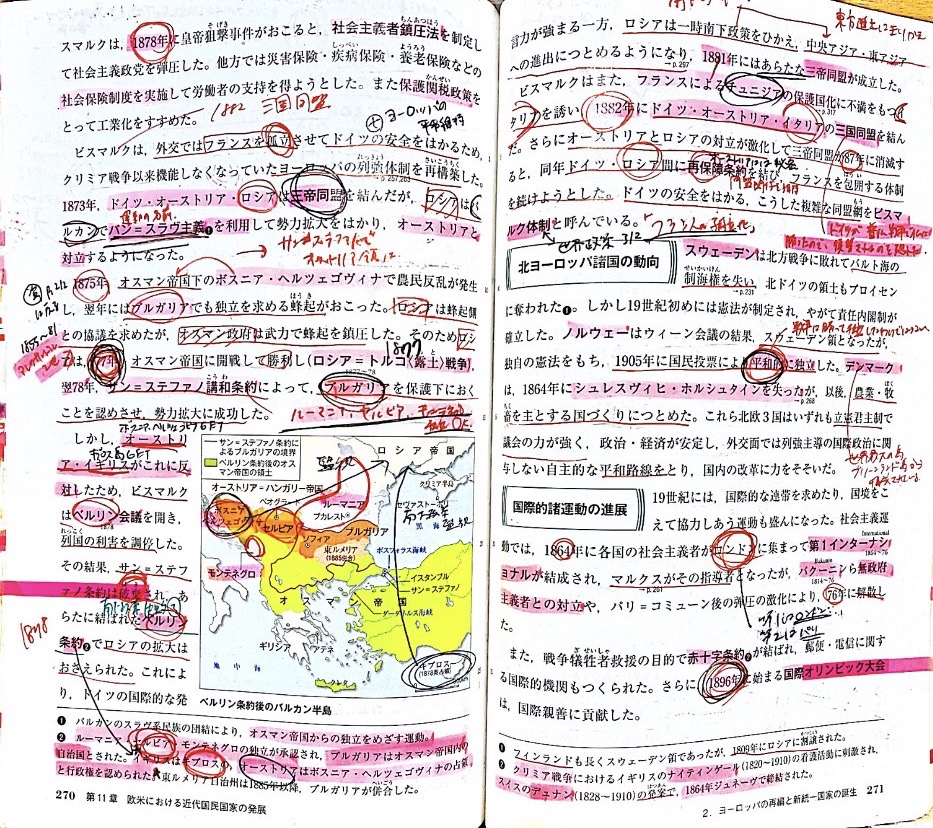 スマルクは，1878年に皇帝狙撃事件がおこると，社会主義者鎮圧法を制定し
て社会主義政党を弾圧した。他方では災害保険・疾病保険・養老保険などの
社会保険制度を実施して労働者の支持を得ようとした。また保護関税政策を
とって工業化をすすめた。
1882 三国同盟
ビスマルクは，外交ではフランスを孤立させてドイツの安全をはかるため，
クリミア戦争以来機能しなくなっていたヨーロッパの列強体制を再構築した。
1873年，ドイツ・オーストリア・ロシアは三帝同盟を結んだが，ロシアはバ
ルカンでパン＝スラヴ主義❶を利用して勢力拡大をはかり，オーストリアと
対立するようになった。
1875年，オスマン帝国下のボスニア・ヘルツェゴヴィナで農民反乱が発生
し，翌年にはブルガリアでも独立を求める蜂起がおこった。ロシアは蜂起側
との協議を求めたが，オスマン政府は武力で蜂起を鎮圧した。そのためロシ
アは，77年，オスマン帝国に開戦して勝利し（ロシア＝トルコ（露土）戦争），
1877
翌78年，サン＝ステファノ講和条約によって，ブルガリアを保護下におく
ことを認めさせ，勢力拡大に成功した。
しかし，オーストリ
ア・イギリスがこれに反
対したため，ビスマルク
はベルリン会議を開き，
列国の利害を調停した。
その結果，サン＝ステフ
ァノ条約は破棄され，あ
らたに結ばれたベルリン
1878
条約❷でロシアの拡大は
おさえられた。これによ
り，ドイツの国際的な発
サン＝ステファノ条約に
よるブルガリアの境界
ベルリン条約後のオス
マン帝国の領土
ロシア帝国
オーストリア＝ハンガリー帝国
クリミア半島
セヴァストーポリ
ベオグラード
ルーマニア
ブカレスト
ボスニア
ヘルツェゴヴィナ
セルビア
ブルガリア
黒海
ソフィア
東ルメリア
(1885年合)
モンテネグロ
ボスフォラス海峡
イスタンブル
サン＝ステファノ
オスマン帝国
ダーダネルス海峡
ギリシア
アテネ
地中海
クレタ
キプロス
ベルリン条約後のバルカン半島
❶ バルカンのスラヴ系民族の団結により，オスマン帝国からの独立をめざす運動。
❷ ルーマニア・セルビア・モンテネグロの独立が承認され，ブルガリアはオスマン帝国内の
自治国とされた。イギリスはキプロスの，オーストリアはボスニア・ヘルツェゴヴィナの占領
と行政権を認められた。東ルメリア自治州は1885年以降，ブルガリアが併合した。
270 第11章 欧米における近代国民国家の発展
言力が強まる一方，ロシアは一時南下政策をひかえ，中央アジア・東アジア
への進出につとめるようになり，1881年にはあらたな三帝同盟が成立した。
p.297
ビスマルクはまた，フランスによるチュニジアの保護国化に不満をもつイ
p.317
タリアを誘い，1882年にドイツ・オーストリア・イタリアの三国同盟を結ん
だ。さらにオーストリアとロシアの対立が激化して三帝同盟が87年に消滅す
ると，同年ドイツ・ロシア間に再保障条約を結び，フランスを包囲する体制
を続けようとした。ドイツの安全をはかる，こうした複雑な同盟網をビスマ
ルク体制と呼んでいる。
北ヨーロッパ諸国の動向
スウェーデンは北方戦争に敗れてバルト海の
制海権を失い，北ドイツの領土もプロイセン
p.231
に奪われた❶。しかし19世紀初めには憲法が制定され，やがて責任内閣制が
確立した。ノルウェーはウィーン会議の結果，スウェーデン領となったが，
独自の憲法をもち，1905年に国民投票により平和的に独立した。デンマーク
は，1864年にシュレスヴィヒ・ホルシュタインを失ったが，以後，農業・牧
p.268
畜を主とする国づくりにつとめた。これら北欧3国はいずれも立憲君主制で
議会の力が強く，政治・経済が安定し，外交面では列強主導の国際政治に関
与しない自主的な平和路線をとり，国内の改革に力をそそいだ。
国際的諸運動の進展
19世紀には，国際的な連帯を求めたり，国境をこ
えて協力しあう運動も盛んになった。社会主義運
動では，1864年に各国の社会主義者がロンドンに集まって第1インターナシ
International
1864~76
ョナルが結成され，マルクスがその指導者となったが，バクーニンら無政府
p.261
1814~76
主義者との対立や，パリ＝コミューン後の弾圧の激化により，76年に解散し
た。
また，戦争犠牲者救援の目的で赤十字条約❷が結ばれ，郵便・電信に関す
る国際的機関もつくられた。さらに1896年に始まる国際オリンピック大会
は，国際親善に貢献した。
❶ フィンランドも長くスウェーデン領であったが，1809年にロシアに割譲された。
❷ クリミア戦争におけるイギリスのナイティンゲール（1820~1910）の看護活動に刺激され，
スイスのデュナン（1828~1910）の発案で，1864年ジュネーヴで締結された。
2. ヨーロッパの再編と新統一国家の誕生 271